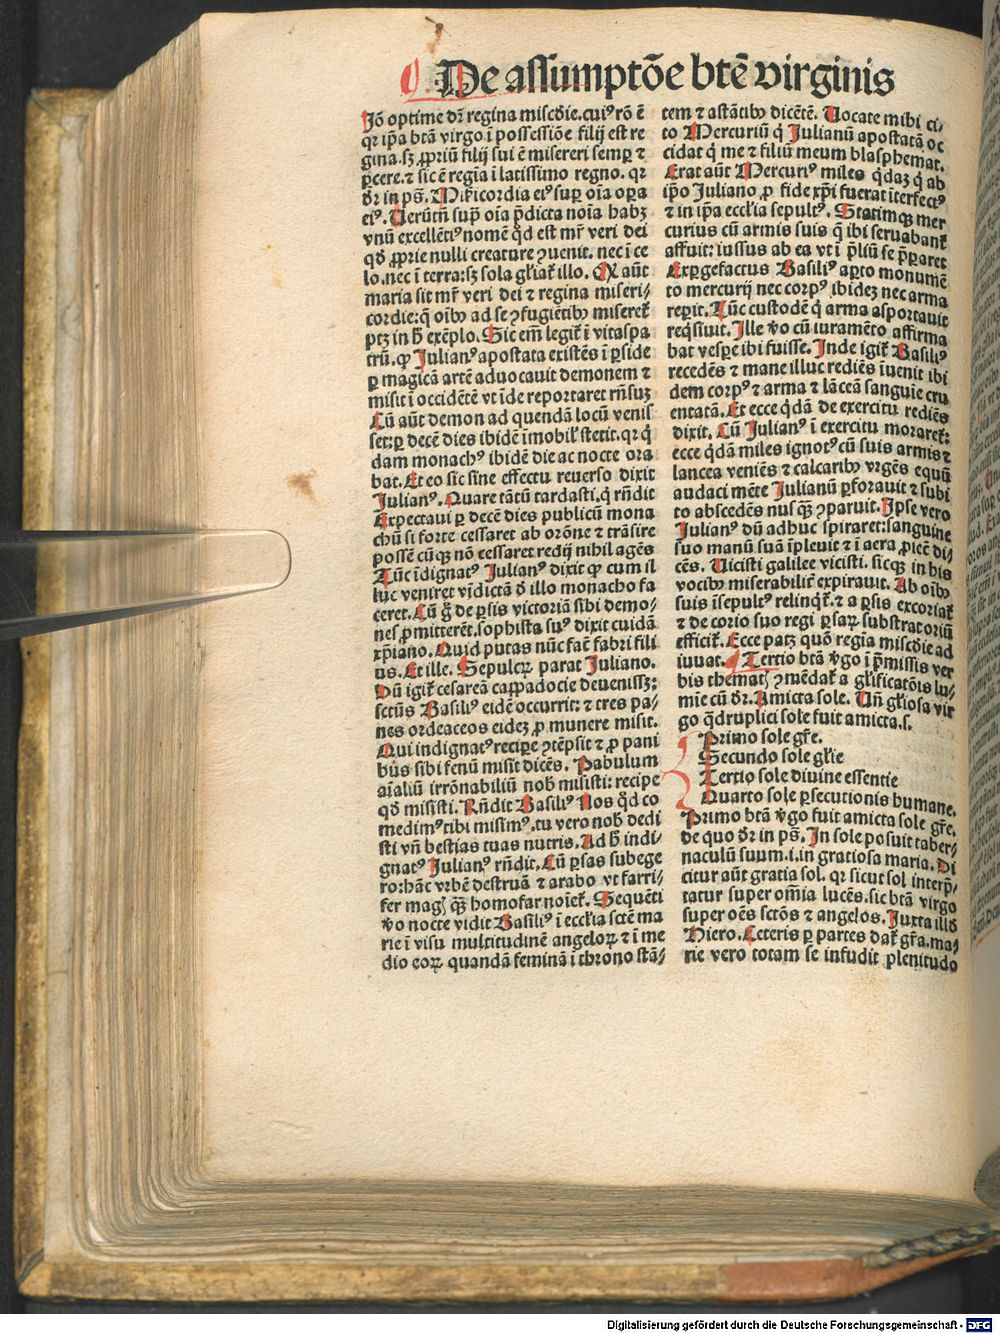 De assumptõe btẽ virginis
Jõ optime dr̃ regina miscd̃ie.cuiꝰ rõ ẽ
qr ip̃a btã virgo ĩ possessiõe filij est re
gina.sꝫ ꝓpriũ filij sui ẽ misereri semꝑ ⁊
ꝑcere.⁊ sic ẽ regia ĩ latissimo regno. qr
d̃r in pš. Mĩcordia eiꝰ suꝑ oĩa oꝑa
eiꝰ. Uerũtñ suꝑ oĩa p̃dicta noĩa habꝫ
vnũ excellẽtiꝰ nomẽ qd̃ est mr̃ veri dei
qd̃ ꝓprie nulli creature ꝯuenit. nec ĩ ce
lo.nec ĩ terra:sꝫ sola gl̃iaĩ illo. Ex aũt
maria sit mr̃ veri dei ⁊ regina miseri⸗
cordie:q̃ oĩbꝰ ad se ꝯfugiẽtibꝰ misereĩ
ptꝫ in h̃ exẽplo. Sic em̃ legiĩ ĩ vitaspa
trũ.ꝙ Julianꝰ apostata existẽs ĩ ꝑside
ꝑ magicã artẽ aduocauit demonem ⁊
misit ĩ occidẽtẽ vt ĩde reportaret rñsuꝫ
Cũ aũt demon ad quendã locũ venis
set:ꝑ decẽ dies ibidẽ ĩmobil̃ stetit.qr q̃
dam monachꝰ ibidẽ die ac nocte ora
bat. Et eo sic sine effectu reuerso dixit
Julianꝰ. Quare tãtũ tardasti.q̃ rñdit
Expectaui ꝑ decẽ dies publicũ mona
chũ si forte cessaret ab orõne ⁊ trãsire
possẽ cũqꝫ nõ cessaret redij nihil agẽs
Tũc ĩdignatꝰ Julianꝰ dixit ꝙ cum il
luc veniret vĩdictã d̃ illo monacho fa
ceret. Cũ g̃ de ꝑsis victoriã sibi demo⸗
nes ꝓmitterẽt.sophista suꝰ dixit cuidã
xp̃iano. Quid putas nũc faẽ fabri fili
us. Et ille. Sepulcꝝ parat Juliano.
Dũ igiĩ cesareã cappadocie deuenissꝫ:
sctũs Basiliꝰ eidẽ occurrit: ⁊ tres pa⸗
nes ordeaceos eideꝫ ꝓ munere misit.
Qui indignatꝰ reciꝑe ꝯtẽpsit ⁊ ꝓ pani
bus sibi fenũ misit dicẽs. Pabulum
aĩaliũ irrõnabiliũ nob̃ misisti: recipe
qd̃ misisti. Rñdit Basiliꝰ Nos qd̃ co
medimꝰ tibi misimꝰ.tu vero nob̃ dedi
sti vñ bestias tuas nutris. Ad h̃ indi⸗
gnatꝰ Julianꝰ rñdit. Cũ ꝑsas subege
ro:hãc vrbẽ destruã ⁊ arabo vt farri⸗
fer mag̃ qꝫ homofar noĩeĩ. Sequẽti
v̊o nocte vidit Basiliꝰ ĩ eccl̃ia sctẽ ma
rie ĩ visu multitudinẽ angeloꝝ ⁊ ĩ me
dio eoꝝ quandã feminã ĩ throno stã⸗
tem ⁊ astãtibꝰ dicẽtẽ. Uocate mihi ci⸗
to Mercuriũ q̃ Julianũ apostatã oc
cidat q̃ me ⁊ filiũ meum blasphemat.
Erat aũt Mercuriꝰ miles q̃daꝫ q̃ ab
ip̃o Juliano ꝓ fide xp̃i fuerat ĩterfectꝰ
⁊ in ip̃a eccl̃ia sepultꝰ. Statimqꝫ mer
curius cũ armis suis q̃ ibi seruabanĩ
affuit: iussus ab ea vt ĩ p̃liũ se p̃ꝑaret
Exꝑgefactus Basiliꝰ aꝑto monumẽ
to mercurij nec corpꝰ ibideꝫ nec arma
reꝑit. Tũc custodẽ q̃ arma asportauit
reqsiuit. Ille v̊o cũ iuramẽto affirma
bat vesꝑe ibi fuisse. Inde igiĩ Basiliꝰ
recedẽs ⁊ mane illuc rediẽs ĩuenit ibi
dem corpꝰ ⁊ arma ⁊ lãceã sanguĩe cru
entatã. Et ecce q̃dã de exercitu rediẽs
dixit. Cũ Julianꝰ ĩ exercitu morareĩ:
ecce q̃dã miles ignotꝰ cũ suis armis ⁊
lancea veniẽs ⁊ calcaribꝰ vrgẽs equũ
audaci mẽte Julianũ ꝑforauit ⁊ subi
to abscedẽs nusq̃ꝫ ꝯparuit. Ipse vero
Julianꝰ dũ adhuc spiraret:sanguine
suo manũ suã ĩpleuit ⁊ ĩ aera ꝓiecit di⸗
cẽs. Uicisti galilee vicisti. sicqꝫ in his
vocibꝰ miserabiliĩ expirauit. Ab oĩbꝰ
suis ĩsepultꝰ relinqĩ.⁊ a ꝑsis excoriaĩ
⁊ de corio suo regi ꝑsaꝝ substratoriũ
efficiĩ. Ecce patꝫ quõ regia miscd̃ie ad
iuuat. Tertio btã v̊go ĩ p̃missis ver
bis themaꝭ ꝯmẽdaĩ a gl̃ificatõis lu⸗
mie cũ d̃r. Amicta sole. Uñ gl̃iosa vir
go q̃druplici sole fuit amicta.s.
Primo sole gr̃e.
Secundo sole gl̃ie
Tertio sole divine essentie
Quarto sole ꝑsecutionis humane.
Primo btã v̊go fuit amicta sole gr̃e.
de quo d̃r in pš. In sole posuit taber⸗
naculũ suum.i.in gratiosa maria. Di
citur aũt gratia sol. qr sicut sol interp̃⸗
tatur super om̃ia lucẽs.sic btã virgo
super oẽs sctõs ⁊ angelos. Juxta illd̃
Hiero. Ceteris ꝑ partes daĩ gr̃a.ma⸗
rie vero totam se infudit plenitudo
Digitalisierung gefördert durch die Deutsche Forschungsgemeinschaft - DFG